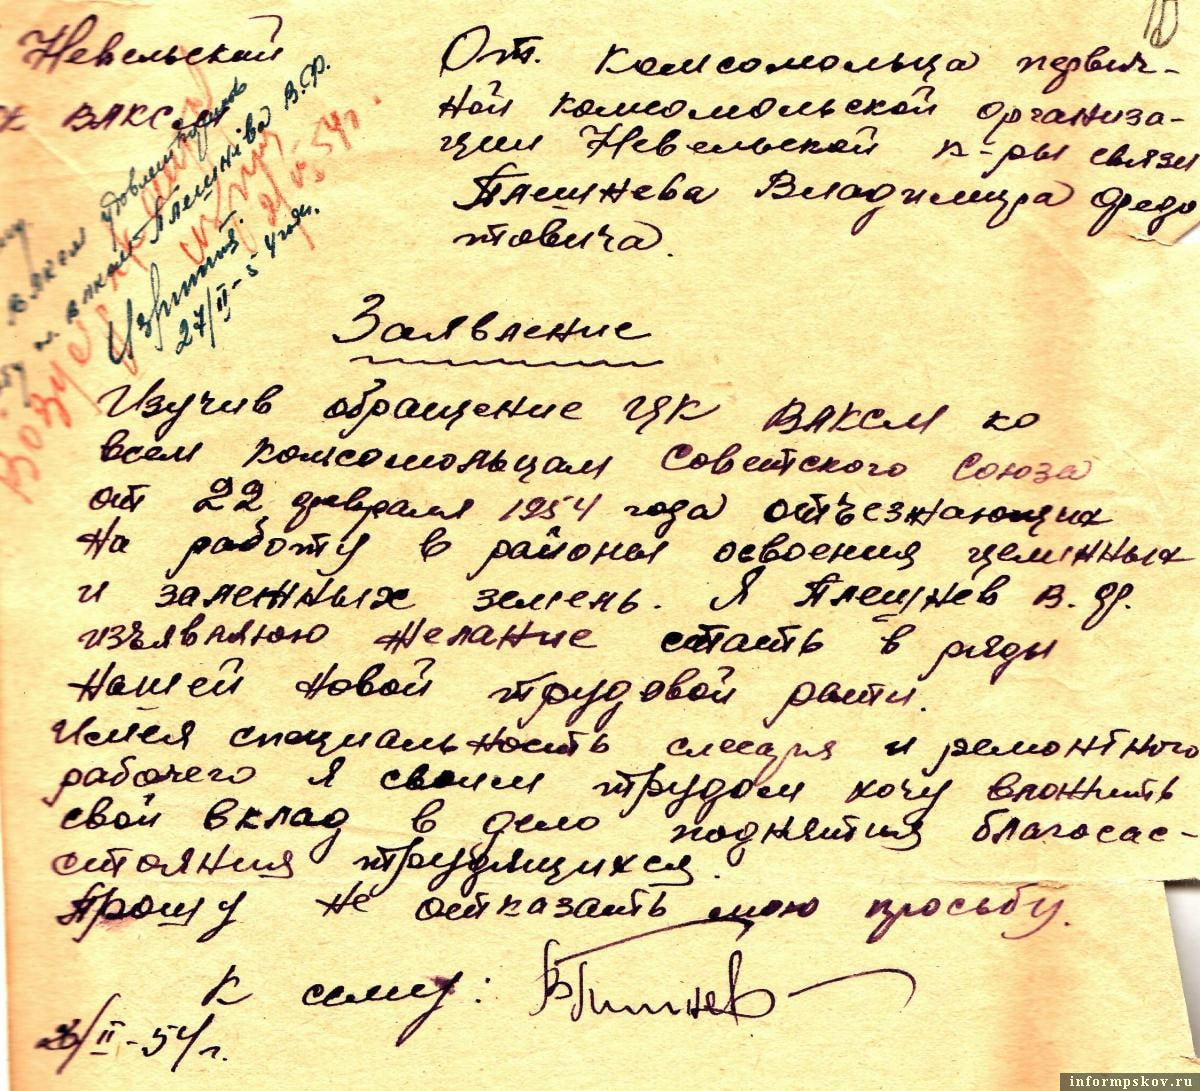 Невельский
ВЛКСМ
От. Комсомольца первич-
ной комсомольской организа-
ции Невельской к-ры связи
Плешнева Владимира Федо
товича.
Плешнева В.Ф.
27/II-54 года.
Заявление
Изучив обращение ЦК ВЛКСМ ко
всем комсомольцам Советского Союза
от 22 февраля 1954 года отъезжающих
на работу в районы освоения целинных
и залежных земель. Я Плешнев В.Ф.
изъявляю желание стать в ряды
нашей новой трудовой рати.
Имея специальность слесаря и ремонтного
рабочего я своим трудом хочу вложить
свой вклад в дело поднятия благосас-
стояния трудящихся.
Прошу не отказать мою просьбу.
К сему: ВПлешнев
/II-54 г.
informpskov.ru